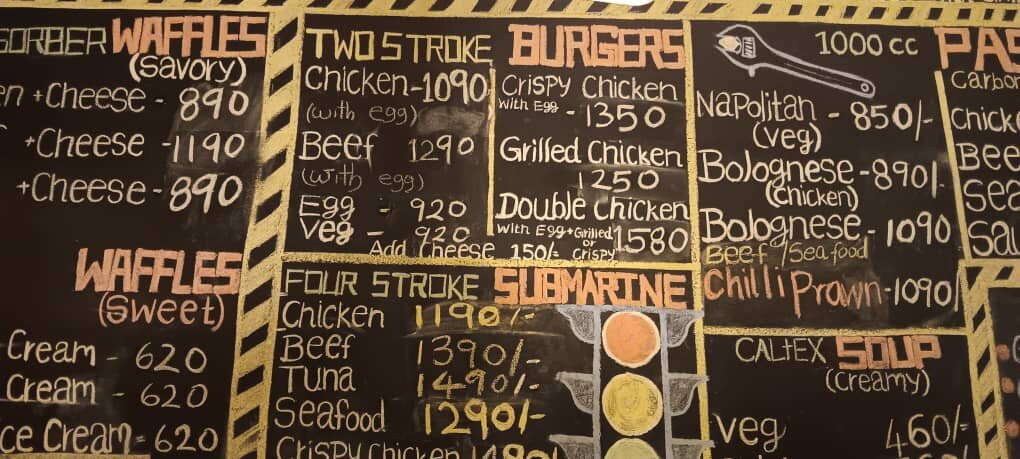 SORBER WAFFLES
(Savory)
+Cheese - 890
+Cheese - 1190
+Cheese - 890
WAFFLES
(Sweet)
Cream - 620
Cream - 620
ce Cream - 620
TWO STROKE BURGERS
Chicken - 1090
(with egg)
Beef 1290
(with egg)
Egg - 920
Veg - 920
Crispy Chicken
With Egg - 1350
Grilled Chicken
1250
Double Chicken
With Egg + Grilled or Crispy 1580
Add Cheese 150/-
FOUR STROKE SUBMARINE
Chicken 1190/-
Beef 1390/-
Tuna 1490/-
Seafood 1290/-
Crispy Chicken 1490/-
1000 cc PAS
Napolitan - 850/-
(veg)
Bolognese - 890/-
(chicken)
Bolognese - 1090
Beef / Sea food
Chilli Prawn - 1090/
Carbon
Chick
Bee
Sea
Sau
CALTEX SOUP
(creamy)
Veg 460/-